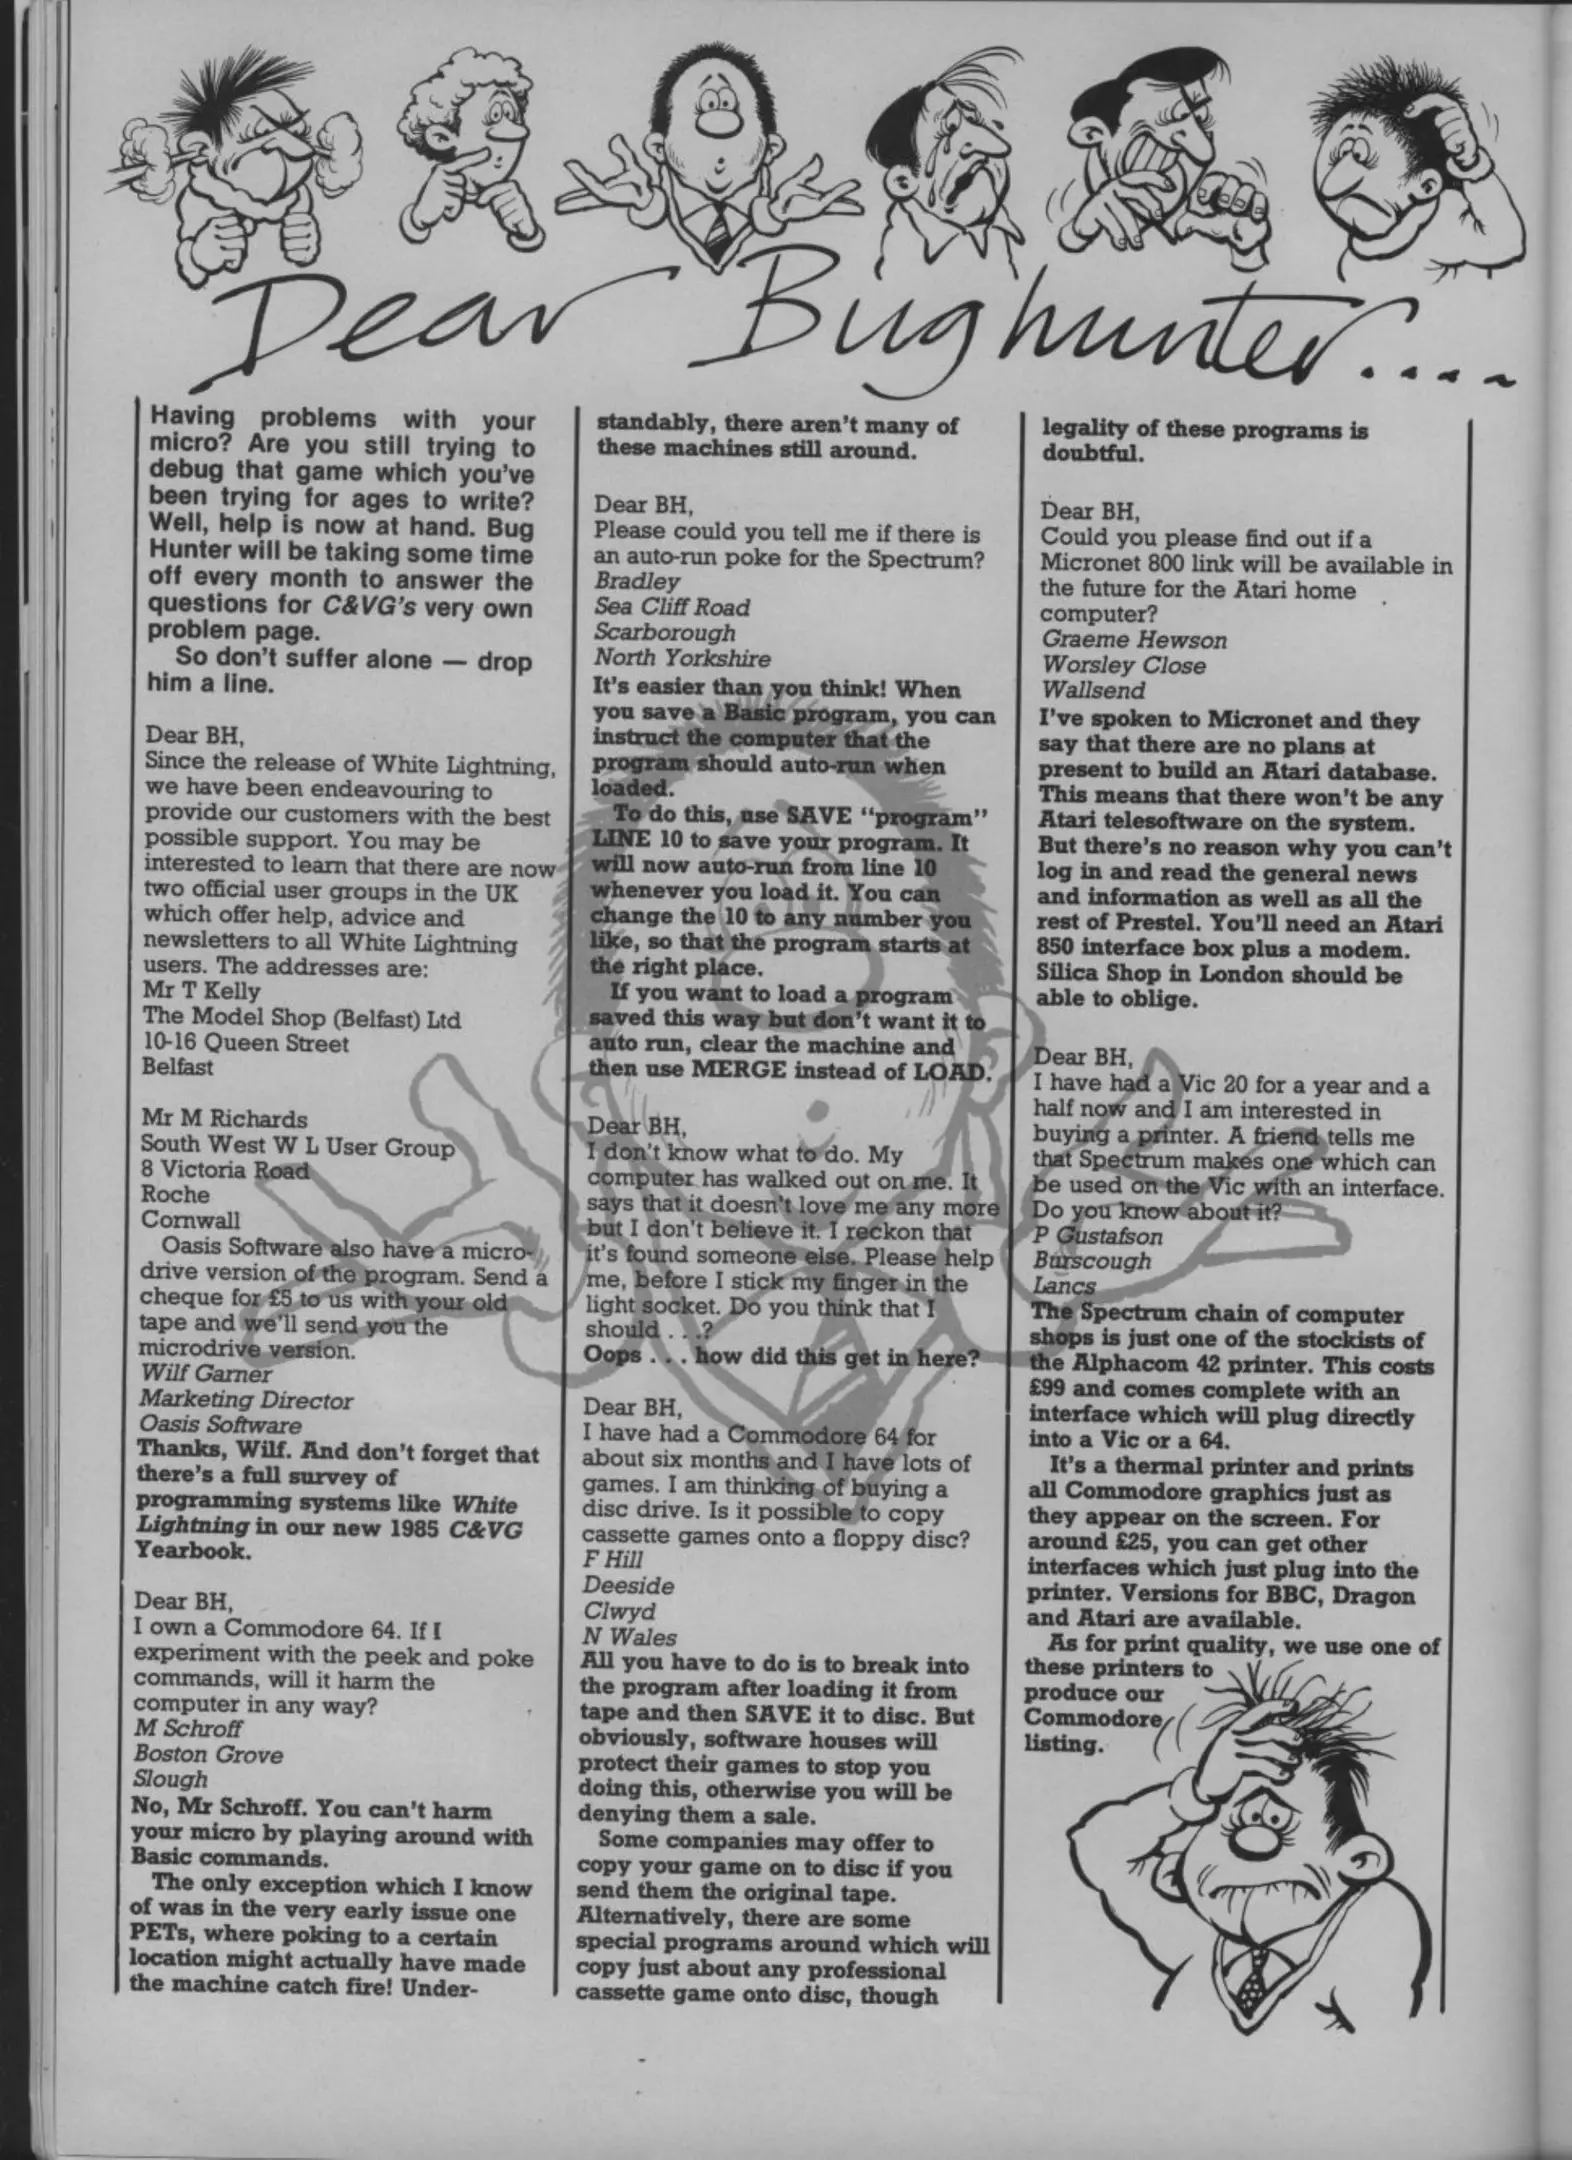 Dear Bughunter....
Having problems with your
micro? Are you still trying to
debug that game which you've
been trying for ages to write?
Well, help is now at hand. Bug
Hunter will be taking some time
off every month to answer the
questions for C&VG's very own
problem page.
So don't suffer alone — drop
him a line.
Dear BH,
Since the release of White Lightning,
we have been endeavouring to
provide our customers with the best
possible support. You may be
interested to learn that there are now
two official user groups in the UK
which offer help, advice and
newsletters to all White Lightning
users. The addresses are:
Mr T Kelly
The Model Shop (Belfast) Ltd
10-16 Queen Street
Belfast
Mr M Richards
South West W L User Group
8 Victoria Road
Roche
Cornwall
Oasis Software also have a micro-
drive version of the program. Send a
cheque for £5 to us with your old
tape and we'll send you the
microdrive version.
Wilf Garner
Marketing Director
Oasis Software
Thanks, Wilf. And don't forget that
there's a full survey of
programming systems like White
Lightning in our new 1985 C&VG
Yearbook.
Dear BH,
I own a Commodore 64. If I
experiment with the peek and poke
commands, will it harm the
computer in any way?
M Schroff
Boston Grove
Slough
No, Mr Schroff. You can't harm
your micro by playing around with
Basic commands.
The only exception which I know
of was in the very early issue one
PETs, where poking to a certain
location might actually have made
the machine catch fire! Under-
standably, there aren't many of
these machines still around.
Dear BH,
Please could you tell me if there is
an auto-run poke for the Spectrum?
Bradley
Sea Cliff Road
Scarborough
North Yorkshire
It's easier than you think! When
you save a Basic program, you can
instruct the computer that the
program should auto-run when
loaded.
To do this, use SAVE "program"
LINE 10 to save your program. It
will now auto-run from line 10
whenever you load it. You can
change the 10 to any number you
like, so that the program starts at
the right place.
If you want to load a program
saved this way but don't want it to
auto run, clear the machine and
then use MERGE instead of LOAD.
Dear BH,
I don't know what to do. My
computer has walked out on me. It
says that it doesn't love me any more
but I don't believe it. I reckon that
it's found someone else. Please help
me, before I stick my finger in the
light socket. Do you think that I
should . . .?
Oops . . . how did this get in here?
Dear BH,
I have had a Commodore 64 for
about six months and I have lots of
games. I am thinking of buying a
disc drive. Is it possible to copy
cassette games onto a floppy disc?
F Hill
Deeside
Clwyd
N Wales
All you have to do is to break into
the program after loading it from
tape and then SAVE it to disc. But
obviously, software houses will
protect their games to stop you
doing this, otherwise you will be
denying them a sale.
Some companies may offer to
copy your game on to disc if you
send them the original tape.
Alternatively, there are some
special programs around which will
copy just about any professional
cassette game onto disc, though
legality of these programs is
doubtful.
Dear BH,
Could you please find out if a
Micronet 800 link will be available in
the future for the Atari home
computer?
Graeme Hewson
Worsley Close
Wallsend
I've spoken to Micronet and they
say that there are no plans at
present to build an Atari database.
This means that there won't be any
Atari telesoftware on the system.
But there's no reason why you can't
log in and read the general news
and information as well as all the
rest of Prestel. You'll need an Atari
850 interface box plus a modem.
Silica Shop in London should be
able to oblige.
Dear BH,
I have had a Vic 20 for a year and a
half now and I am interested in
buying a printer. A friend tells me
that Spectrum makes one which can
be used on the Vic with an interface.
Do you know about it?
P Gustafson
Burscough
Lancs
The Spectrum chain of computer
shops is just one of the stockists of
the Alphacom 42 printer. This costs
£99 and comes complete with an
interface which will plug directly
into a Vic or a 64.
It's a thermal printer and prints
all Commodore graphics just as
they appear on the screen. For
around £25, you can get other
interfaces which just plug into the
printer. Versions for BBC, Dragon
and Atari are available.
As for print quality, we use one of
these printers to
produce our
Commodore
listing.